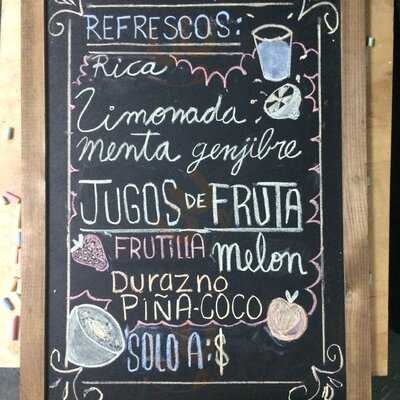 REFRESCOS:
Rica
Limonada
menta genjibre
JUGOS DE FRUTA
FRUTILLA melon
Durazno
PIÑA-COCO
SOLO A:$